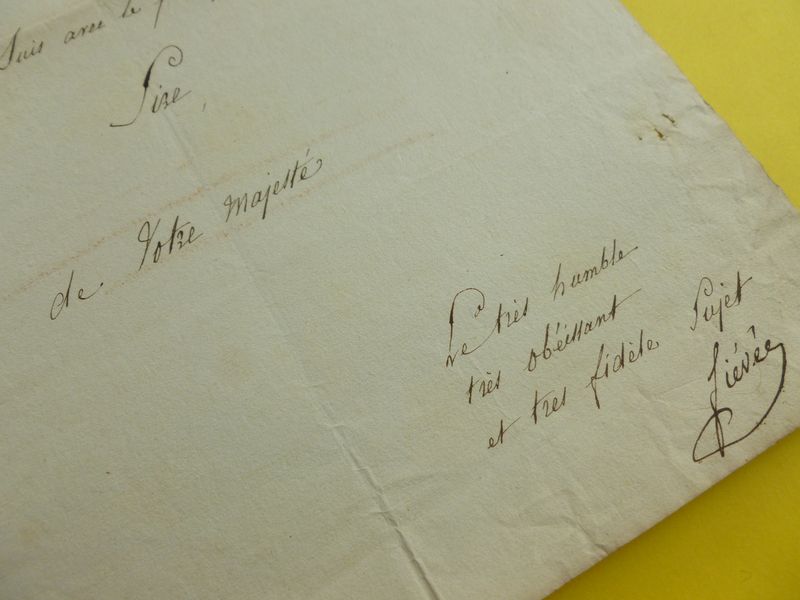 Suis avec le
Sire,
de Votre majesté
Le très humble
très obéissant
et tres fidèle Sujet
fiévée